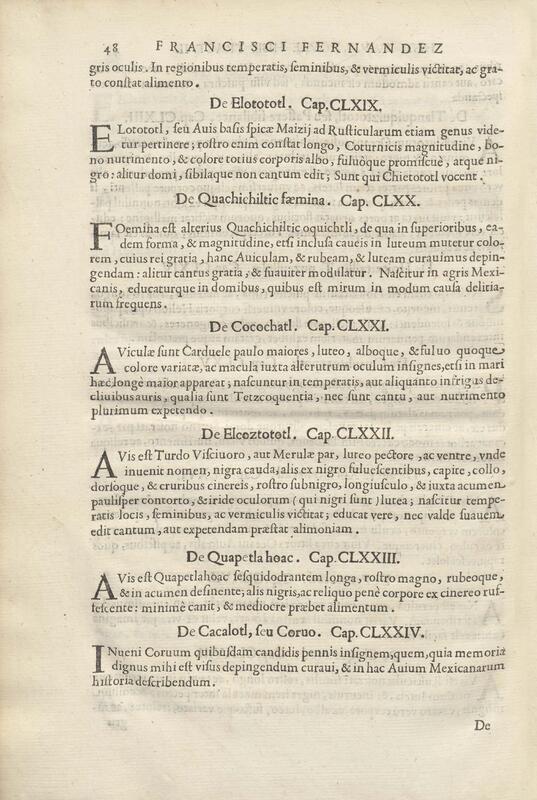 48 FRANCISCI FERNANDEZ
gris oculis. In regionibus temperatis, seminibus, & vermiculis victitat, ac gra-
to constat alimento.
De Elotototl. Cap.CLXIX.
ELotototl, seu Avis basis spicæ Maizij ad Rusticularum etiam genus vide-
tur pertinere; rostro enim constat longo, Coturnicis magnitudine, bo-
no nutrimento, & colore totius corporis albo, fuluòque promiscuè, atque ni-
gro: alitur domi, sibilaque non cantum edit; Sunt qui Chietototl vocent.
De Quachichiltic fæmina. Cap. CLXX.
FOemina est alterius Quachichiltic oquichtli, de qua in superioribus, ea-
dem forma, & magnitudine, etsi inclusa caueis in luteum mutetur colo-
rem, cuius rei gratia, hanc Auiculam, & rubeam, & luteam curauimus depin-
gendam: alitur cantus gratia, & suauiter modulatur. Nascitur in agris Mexi-
canis, educaturque in domibus, quibus est mirum in modum causa delitia-
rum frequens.
De Cocochatl. Cap.CLXXI.
AViculæ sunt Carduele paulo maiores, luteo, alboque, & fuluo quoque
colore variatæ, ac macula iuxta alterutrum oculum insignes, etsi in mari
hæc longè maior appareat; nascuntur in temperatis, aut aliquanto in frigus de-
cliuibus auris, qualia sunt Tetzcoquentia, nec sunt cantu, aut nutrimento
plurimum expetendo.
De Elcoztototl. Cap.CLXXII.
AVis est Turdo Visciuoro, aut Merulæ par, luteo pectore, ac ventre, vnde
inuenit nomen, nigra cauda, alis ex nigro fuluescentibus, capite, collo,
dorsoque, & cruribus cinereis, rostro subnigro, longiusculo, & iuxta acumen
paulisper contorto, & iride oculorum (qui nigri sunt) lutea; nascitur tempe-
ratis locis, seminibus, ac vermiculis victitat; educat vere, nec valde suauem
edit cantum, aut expetendam præstat alimoniam.
De Quapetlahoac. Cap.CLXXIII.
AVis est Quapetlahoac sesquidodrantem longa, rostro magno, rubeoque,
& in acumen desinente; alis nigris, ac reliquo penè corpore ex cinereo ruf-
fescente: minimè canit, & mediocre præbet alimentum.
De Cacalotl, seu Coruo. Cap.CLXXIV.
INueni Coruum quibusdam candidis pennis insignem, quem, quia memoria
dignus mihi est visus depingendum curaui, & in hac Auium Mexicanarum
historia describendum.
De